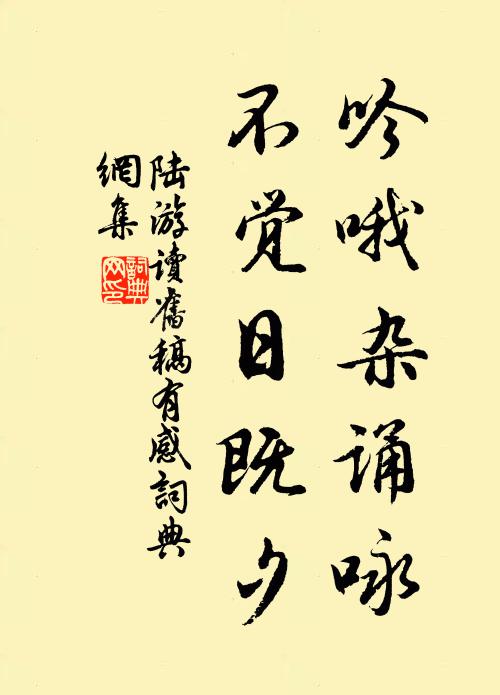 吟哦杂诵咏
不觉日既夕
陆游讀舊稿有感詞典
網集
詞典
网印